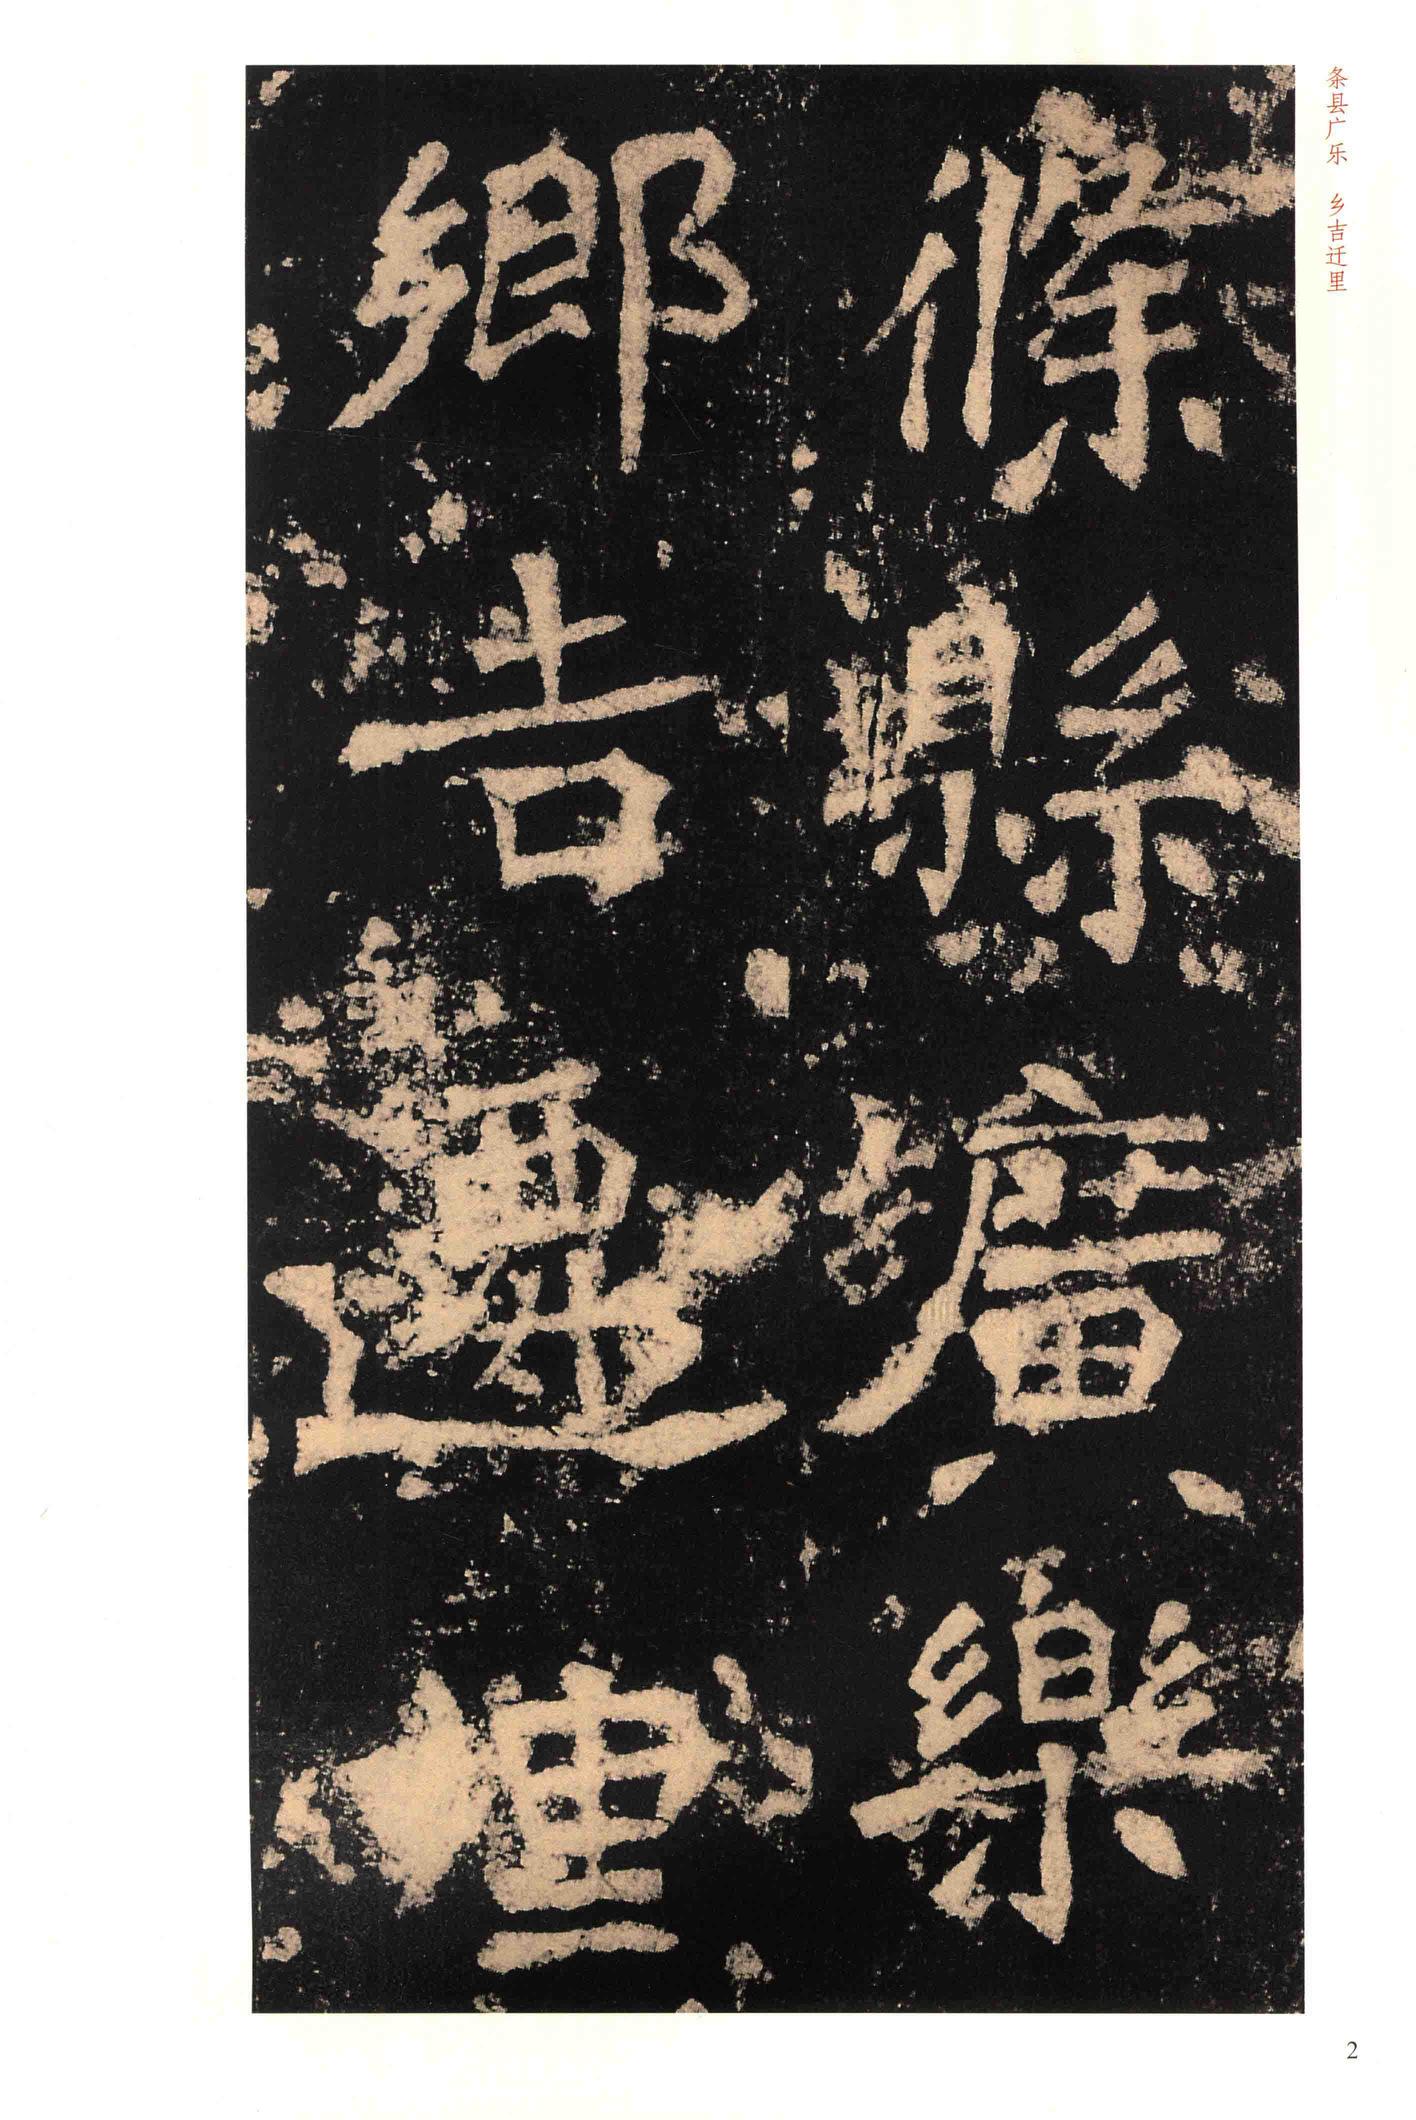 條縣廣樂
鄉吉遷里
条县广乐 乡吉迁里
2